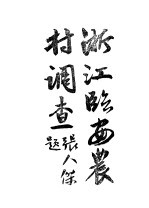 浙江臨安農
村调查
張人傑
题